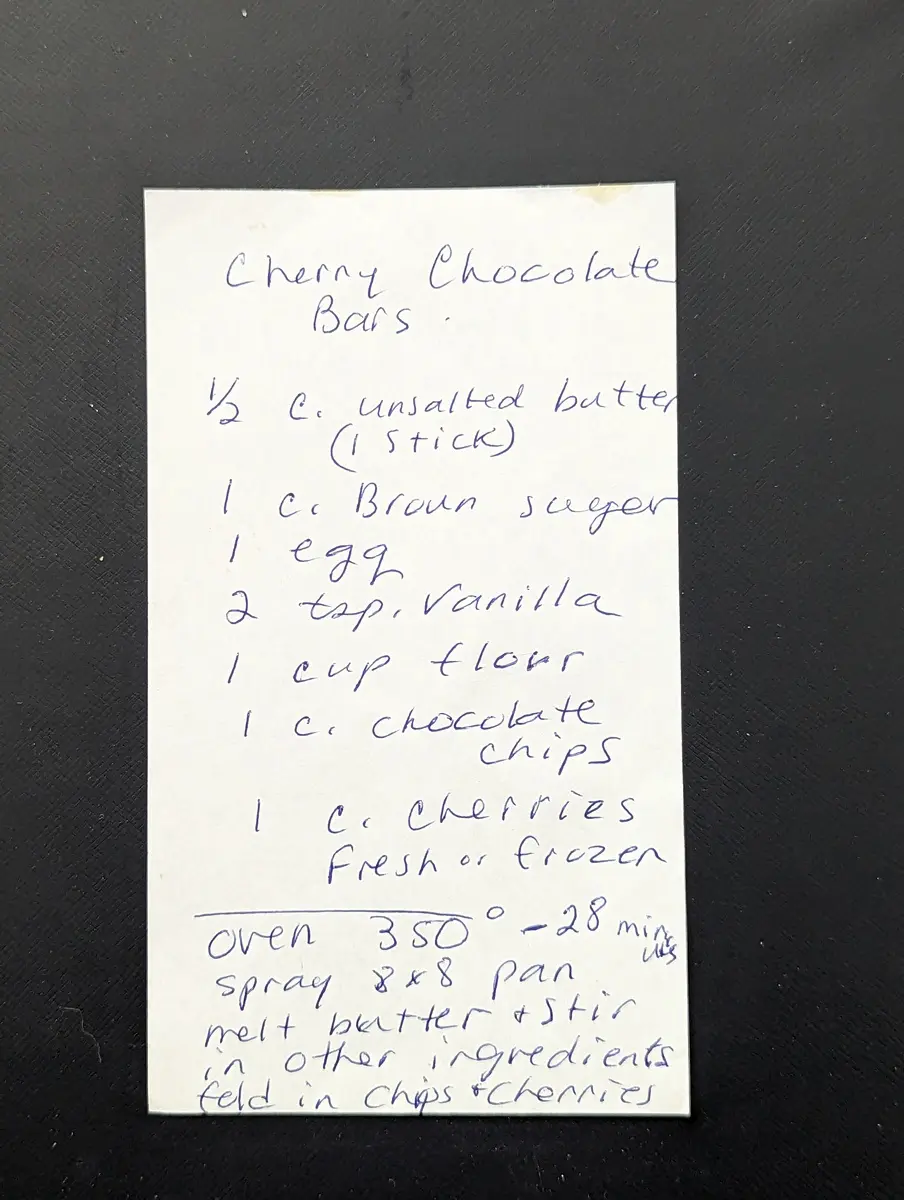 Cherry Chocolate
Bars.
1/2 c. unsalted butter
(1 stick)
1 c. Broun suger
1 egg
2 tsp. Vanilla
1 cup flour
1 c. chocolate
chips
1 c. cherries
Fresh or frozen
oven 350° - 28 minutes
spray 8x8 pan
melt butter + stir
in other ingredients
fold in chips + cherries